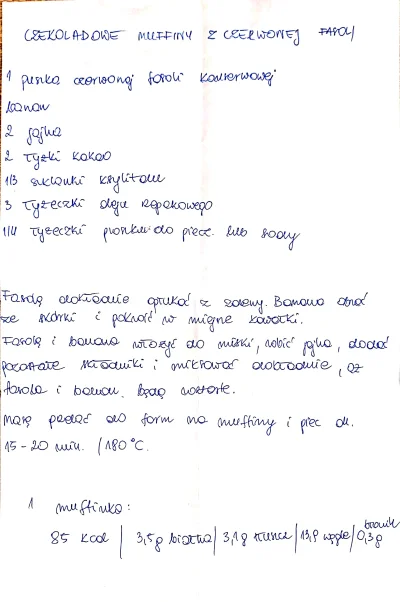 CZEKOLADOWE MUFFINY Z CZERWONEJ FASOLI
1 puszka czerwonej fasoli konserwowej
banan
2 jajka
2 łyżki kakao
1/3 szklanki ksylitolu
3 łyżeczki oleju rzepakowego
1/4 łyżeczki proszku do piecz. lub sody
Fasolę dokładnie opłukać z zalewy. Banana obrać
ze skórki i pokroić w mniejsze kawałki.
Fasolę i banana włożyć do miski, wbić jajka, dodać
pozostałe składniki i miksować dokładnie, aż
fasola i banan będą roztarte.
Masę podać do form na muffiny i piec ok.
15-20 min. /180°C.
1 muffinka:
85 kcal / 3,5g białka / 3,1g tłuszcze / 13,9 węgle / błonnik 0,3g